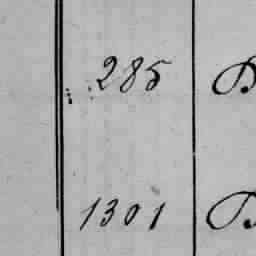 285 В
1301 В